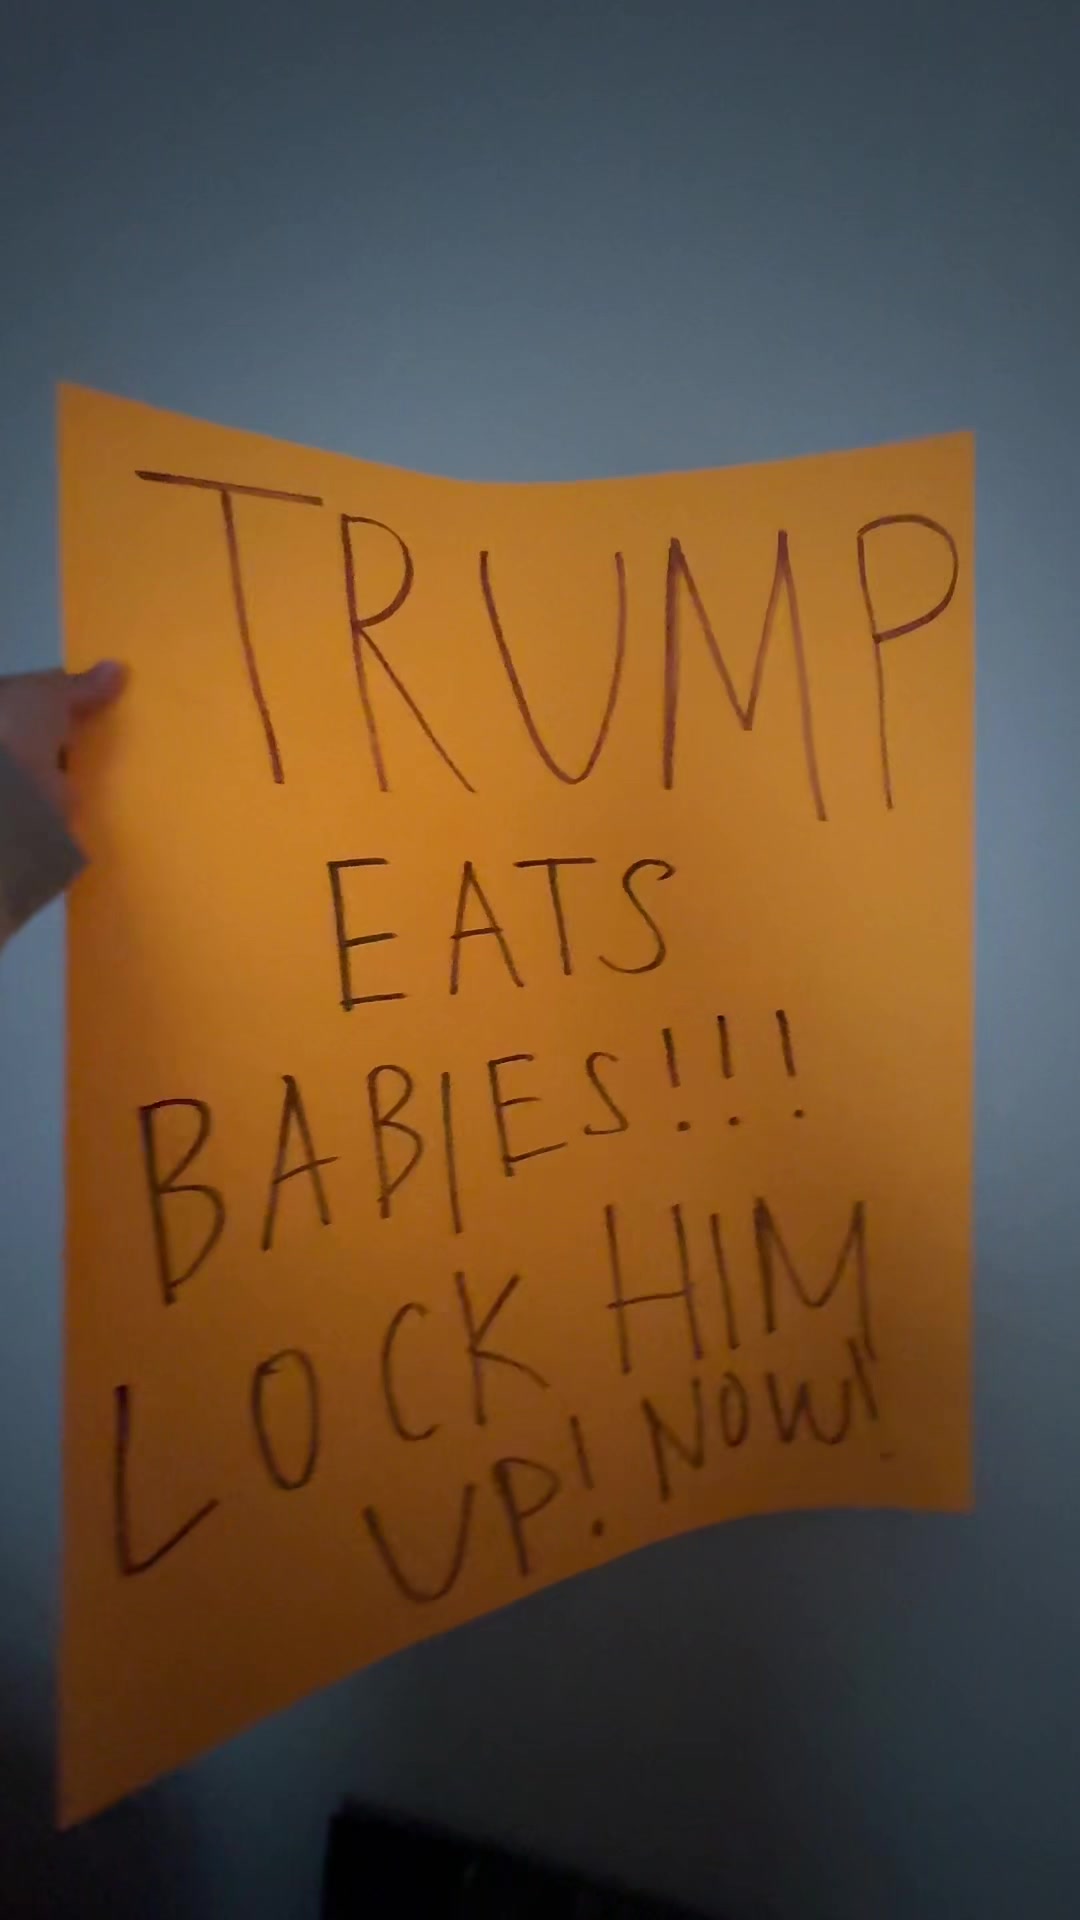 TRUMP
EATS
BABIES!!!
LOCK HIM
UP! NOW!